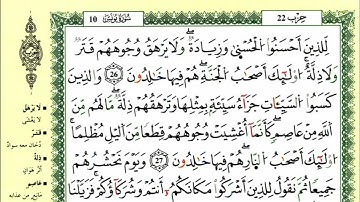 حزب 22
سورة يونس 10
لِّلَّذِينَ أَحْسَنُوا۟ الْحُسْنَىٰ وَزِيَادَةٌ ۖ وَلَا يَرْهَقُ وُجُوهَهُمْ قَتَرٌ
وَلَا ذِلَّةٌ ۚ أُو۟لَٰٓئِكَ أَصْحَٰبُ الْجَنَّةِ ۖ هُمْ فِيهَا خَٰلِدُونَ 26 وَالَّذِينَ
كَسَبُوا۟ السَّيِّـَٔاتِ جَزَآءُ سَيِّئَةٍۭ بِمِثْلِهَا وَتَرْهَقُهُمْ ذِلَّةٌ ۖ مَّا لَهُم مِّنَ
اللَّهِ مِنْ عَاصِمٍ ۖ كَأَنَّمَآ أُغْشِيَتْ وُجُوهُهُمْ قِطَعًا مِّنَ الَّيْلِ مُظْلِمًا ۚ
أُو۟لَٰٓئِكَ أَصْحَٰبُ النَّارِ ۖ هُمْ فِيهَا خَٰلِدُونَ 27 وَيَوْمَ نَحْشُرُهُمْ
جَمِيعًا ثُمَّ نَقُولُ لِلَّذِينَ أَشْرَكُوا۟ مَكَانَكُمْ أَنتُمْ وَشُرَكَآؤُكُمْ ۚ فَزَيَّلْنَا
لا يرهق
لا يغشى
قتر
دخان معه سواد
ذلة
أثر هوان
عاصم
مانع من عذابه